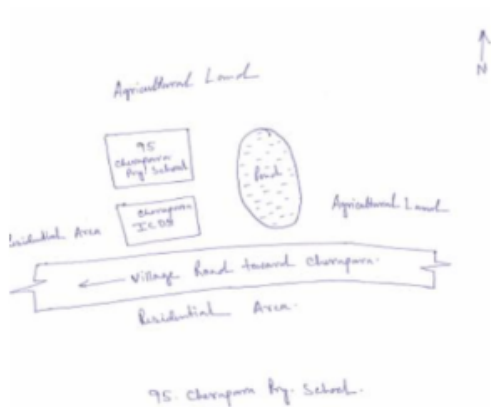 N
Agricultural Land
95
Cherapara
Pry. School
Pond
Cherapara
ICDS
Agricultural Land
Residential Area
← Village Road toward Cherapara.
Residential Area.
95. Cherapara Pry. School.